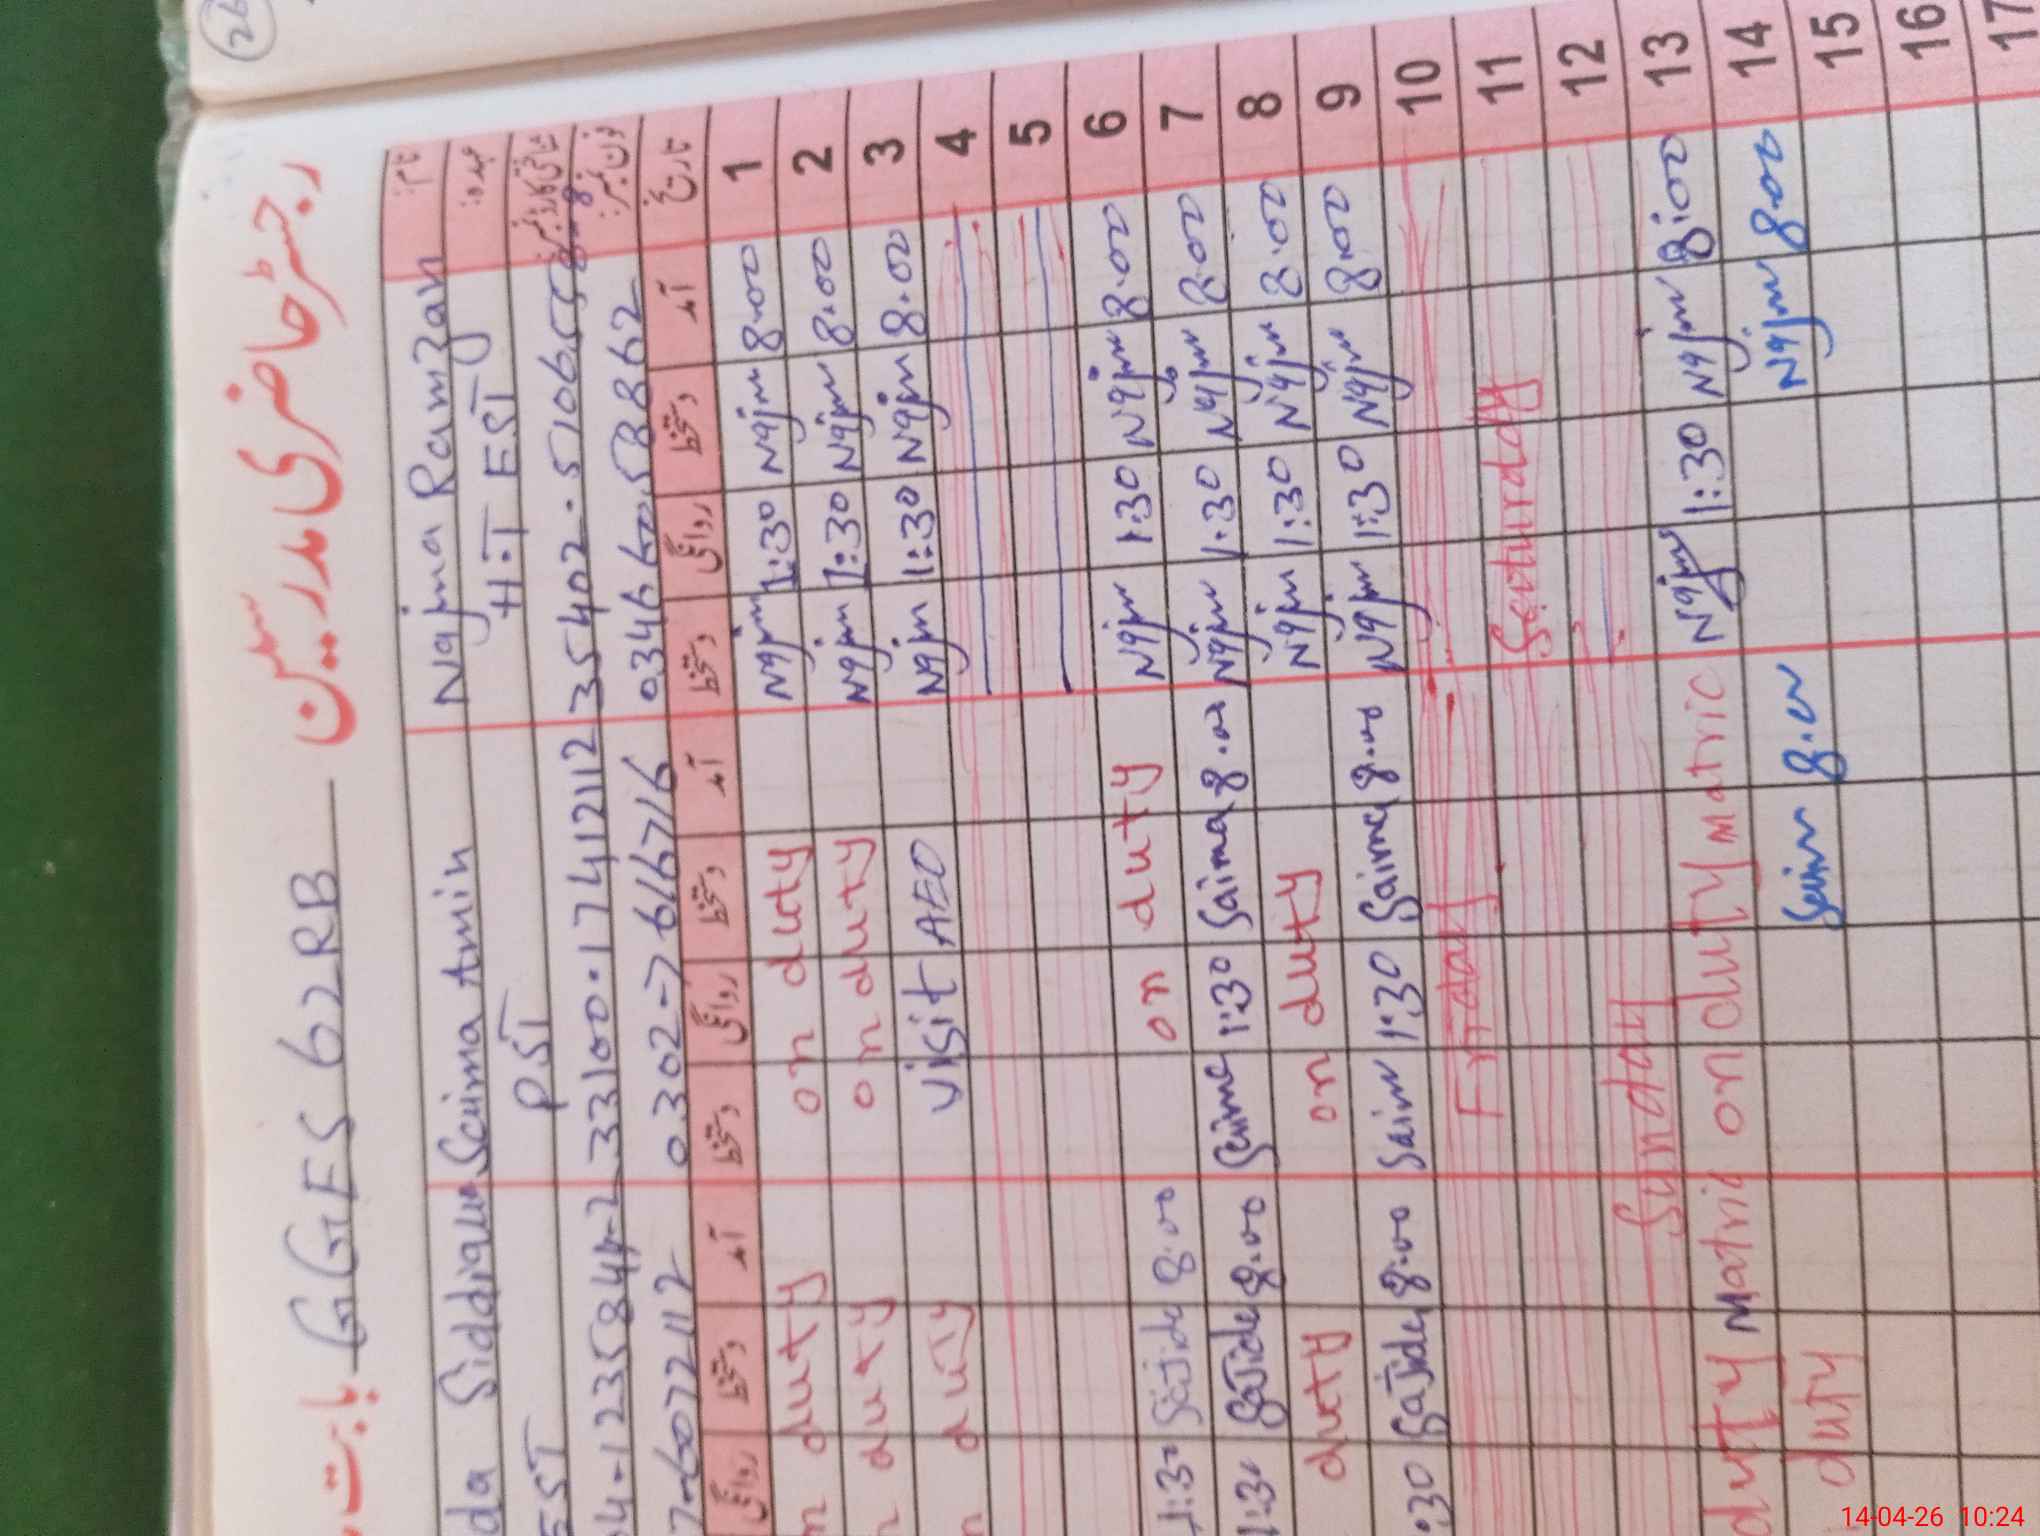 26
رجسٹر حاضری مدرسین
بابت GGES 62RB
نام: Najma Ramzan Saima Amin da Siddique
عہدہ: H.T EST PST EST
شناختی کارڈ نمبر: 33100.17412112
فون نمبر: 0302-7616716
تاریخ آمد دستخط روانگی دستخط آمد دستخط روانگی دستخط آمد دستخط روانگی
1 8.00 Najm 1:30 Najm on duty duty
2 8.00 Najm 1:30 Najm on duty duty
3 8.00 Najm 1:30 Najm visit AEO duty
4
5
6 8.00 Najm 1:30 Najm on duty 8.00 Sajida 1:30
7 8.00 Najm 1:30 Najm 8.00 Saima 1:30 Saima 8.00 Sajida 1:30
8 8.00 Najm 1:30 Najm on duty duty
9 8.00 Najm 1:30 Najm 8.00 Saima 1:30 Saim 8:00 Sajida :30
10 Friday
11 Seaturday
12 Sunday
13 8:00 Najm 1:30 Najm on duty matric duty Matric
14 8.00 Najm 8.00 Saim duty
15
16
17
14-04-26 10:24